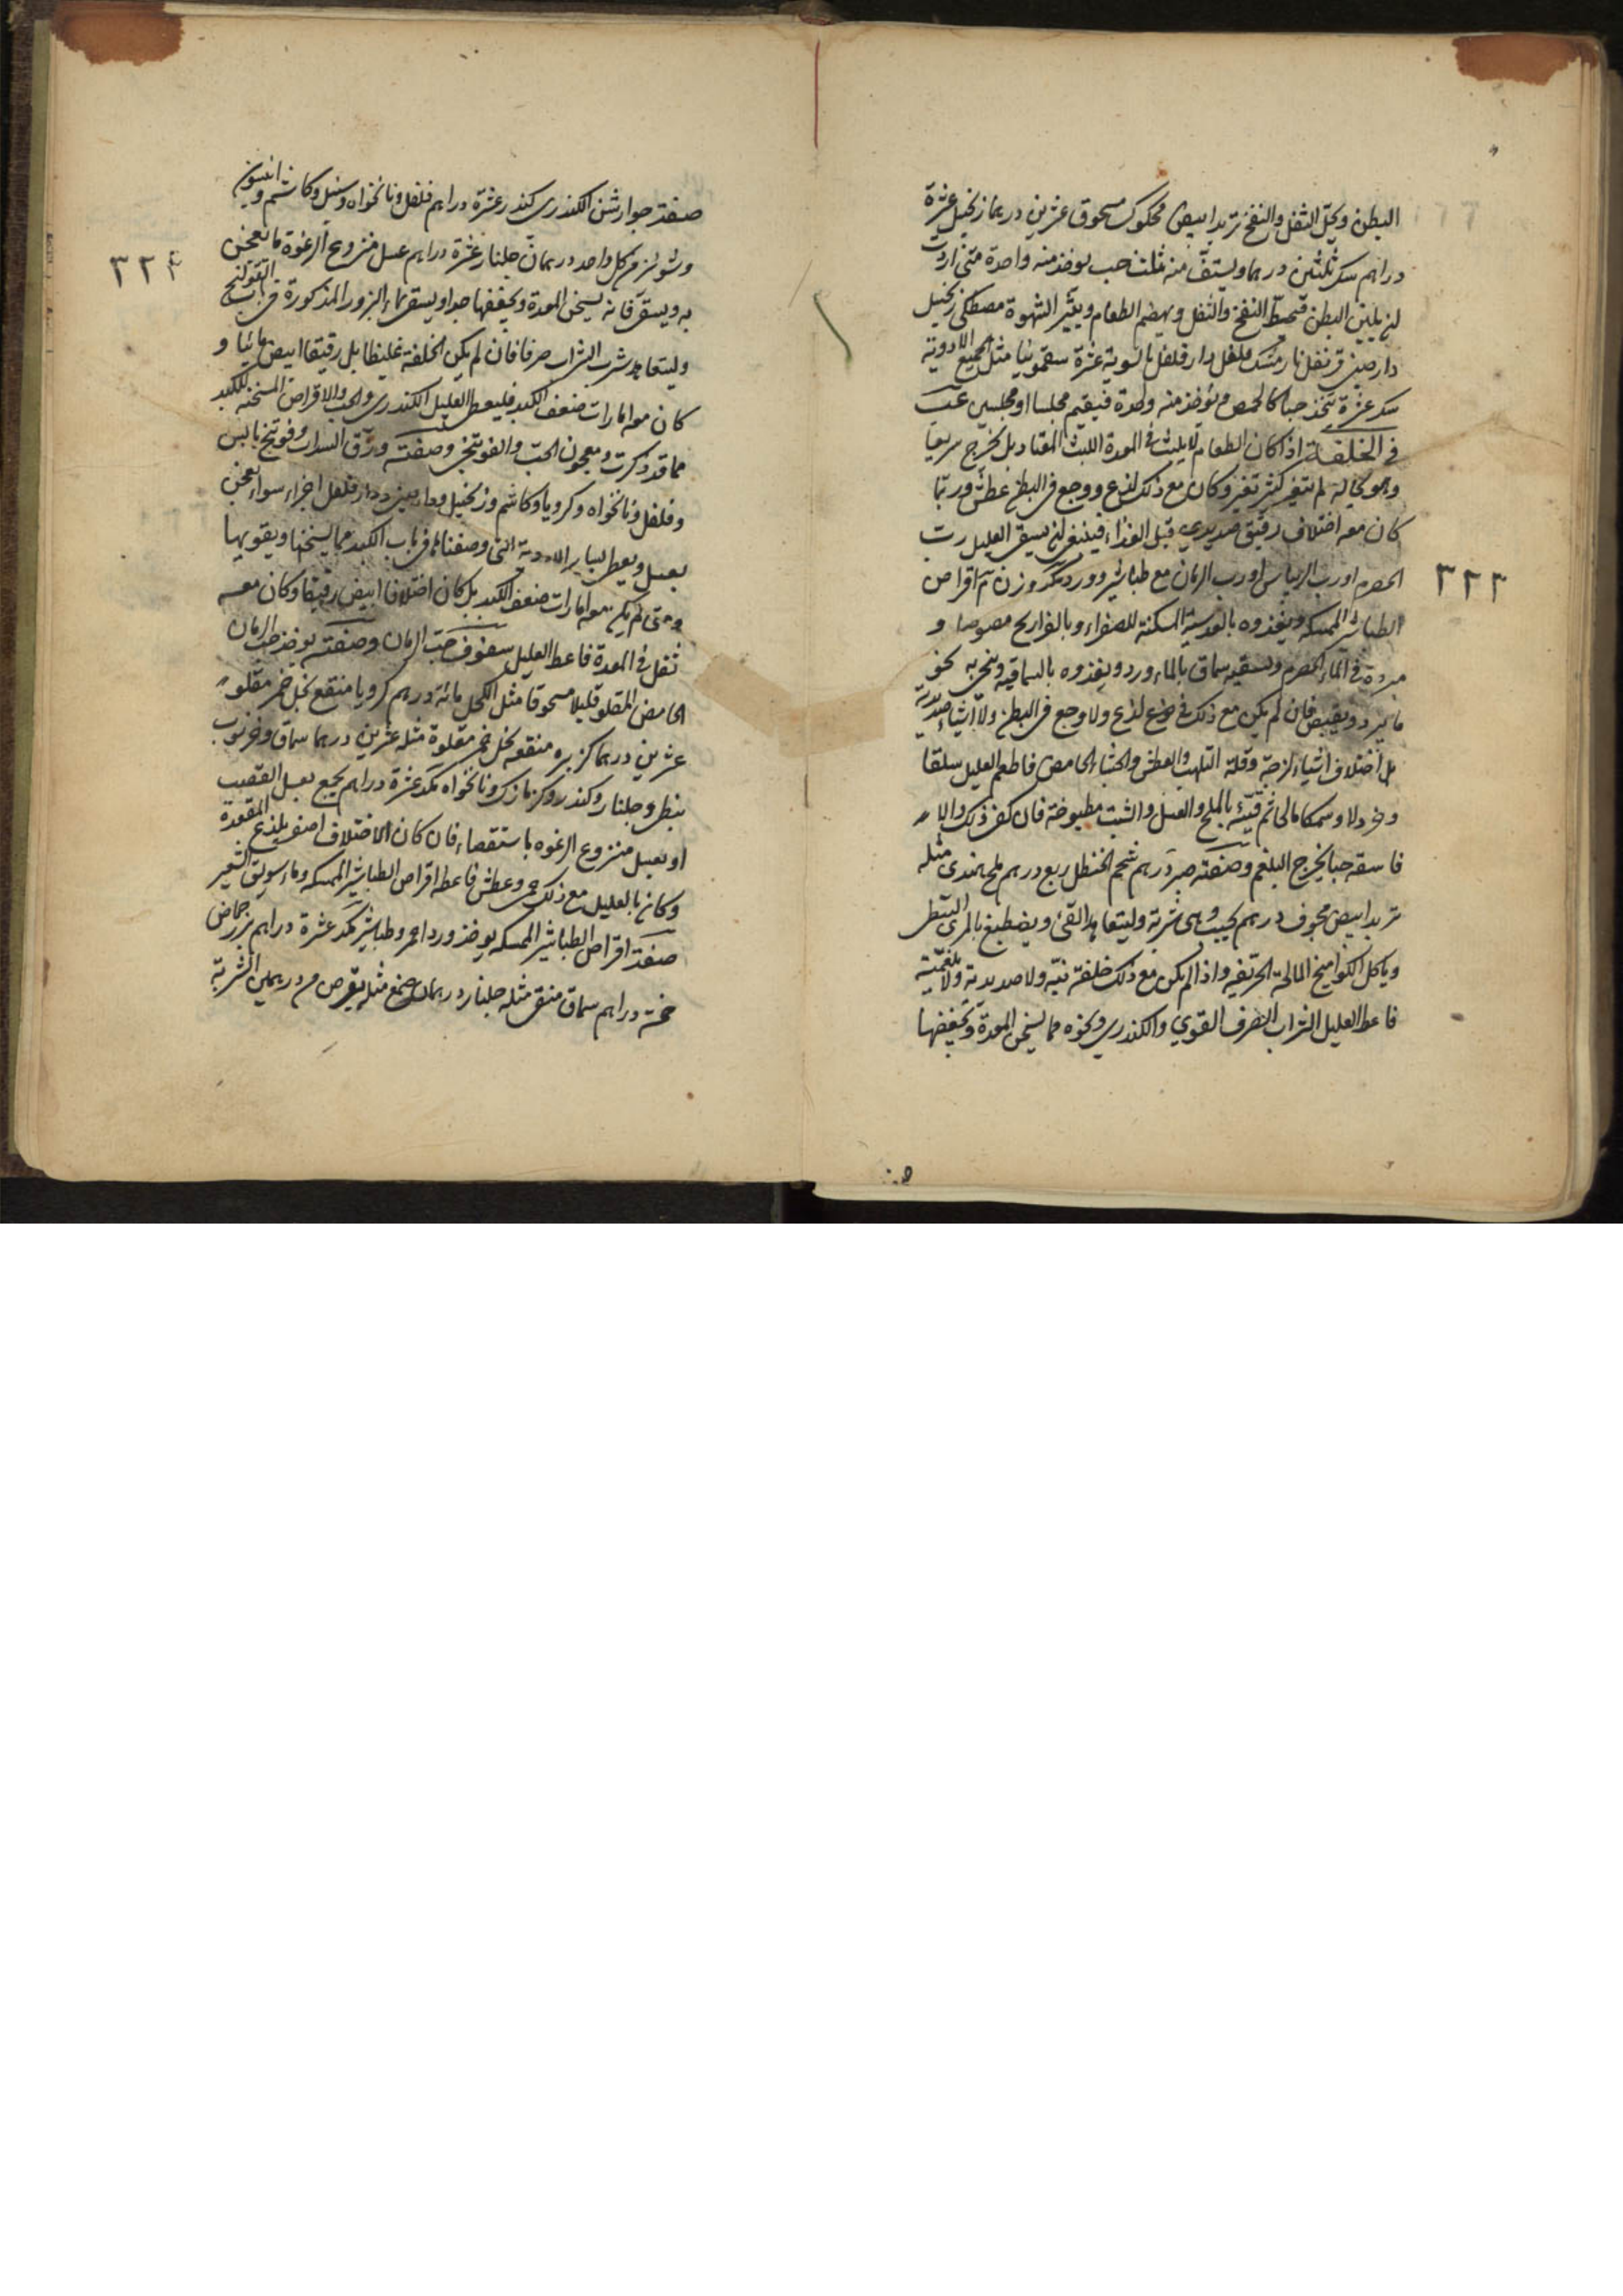 البطن ويحل الثفل والنفخ تربد ابيض محكوك مسحوق عشرين درهما زنجبيل عشرة
دراهم سكر ثلثين درهما ويستف منه مثلث حب يوخذ منه واحدة متى اردت
ان يلين البطن فيحط النفخ والثفل ويهضم الطعام ويثير الشهوة مصطكى زنجبيل
دارصيني قرنفل نارمشك فلفل دارفلفل بالسوية عشرة سقمونيا مثل جميع الادوية
سكر عشرة يتخذ حبا كالحمص ويؤخذ منه واحدة فيقيم مجلسا او مجلسين
في الخلفة اذا كان الطعام لا يلبث في المعدة اللبث المعتاد بل يخرج سريعا
وهو بحاله لم يتغير كثير تغير وكان مع ذلك لذع ووجع في البطن عطش وربما
كان معه اختلاف رقيق صديدي قبل الغذاء فينبغي ان يسقى العليل رب
الحصرم او رب الريباس او رب الرمان مع طباشير وورد اقراص
الطباشير الممسكة ويغذوه بالعدسية المسكنة للصفراء وبالفراريج مصوصا و
مبردة في الماء الحصرم ويسقيه سماق بالماء ورد ويغذوه بالسماقية ونحوه
ما يبرد ويقبض فان لم يكن مع ذلك لذع ولا وجع في البطن ولا اشياء صديدية
بل اختلاف اشياء لزجة وقلة التلهب والعطش والجشاء الحامض فاطعم العليل سلقا
وخردلا وسمكا مالحا ثم قيئه بالملح والعسل والشبت مطبوخة فان كفى ذلك والا
فاسقه حبا يخرج البلغم وصفته صبر درهم شحم الحنظل ربع درهم ملح هندي مثله
تربد ابيض مجوف درهم يحبب وهي شربة وليتعاهد القئ ويصطبغ بالمري النبطي
وياكل الكواميخ المالحة الحريفة واذا لم يكن مع ذلك خلفة نيّه ولا صديدية ولا بلغمية
فاعط العليل الشراب الصرف القوي والكندري ونحوه مما يسخن المعدة ويجففها
٣٢٣
صفة جوارشن الكندري كندر عشرة دراهم فلفل ونانخواه وسنبل وكاشم وانيسون
وشونيز من كل واحد درهمان جلنار عشرة دراهم عسل منزوع الرغوة ما يعجن
به ويسقى فانه يسخن المعدة ويجففها جدا ويسقى ماء البزور المذكورة في باب القولنج
وليتعاهد شرب الشراب صرفا فان لم يكن الخلفة غليظا بل رقيقا ابيض مائيا و
كان معه امارات ضعف الكبد فليعط العليل الكندري والحب والاقراص المسخنة للكبد
مما قد ذكرت ومعجون الحب والفوتنجي وصفته ورق السداب وفوتنج يابس
وفلفل ونانخواه وكرويا وكاشم وزنجبيل ودارصيني ودارفلفل اجزاء سواء يعجن
بعسل ويعطى لسائر الادوية التي وصفناها في باب الكبد مما يسخنها ويقويها
ومتى لم يكن معه امارات ضعف الكبد بل كان اختلافا ابيض رقيقا وكان معه
ثفل في المعدة فاعط العليل سفوف حب الرمان وصفته يوخذ حب الرمان
الحامض المقلو قليلا مسحوقا مثل الكحل مائة درهم كرويا منقع بخل خمر مقلوة
عشرين درهما كزبره منقعه بخل خمر مقلوة مثله عشرين درهما سماق وخرنوب
نبطي وجلنار وكندر وكزمازك ونانخواه مكد عشرة دراهم يجمع بعسل القصب المعقودة
او بعسل منزوع الرغوه باستقصاء فان كان الاختلاف اصفر يلذع
وكان بالعليل مع ذلك حمى وعطش فاعطه اقراص الطباشير الممسكه وماء سويق الشعير
صفة اقراص الطباشير الممسكه يوخذ ورد احمر وطباشير مكد عشرة دراهم بزر حماض
خمسة دراهم سماق منقى مثله جلنار درهمان صمغ مثله يقرص من درهمين الشربة
٣٢٤